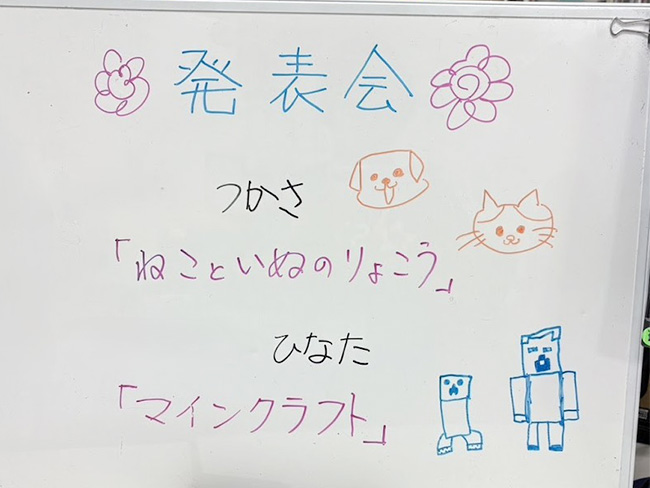 発表会
つかさ
「ねこといぬのりょこう」
ひなた
「マインクラフト」